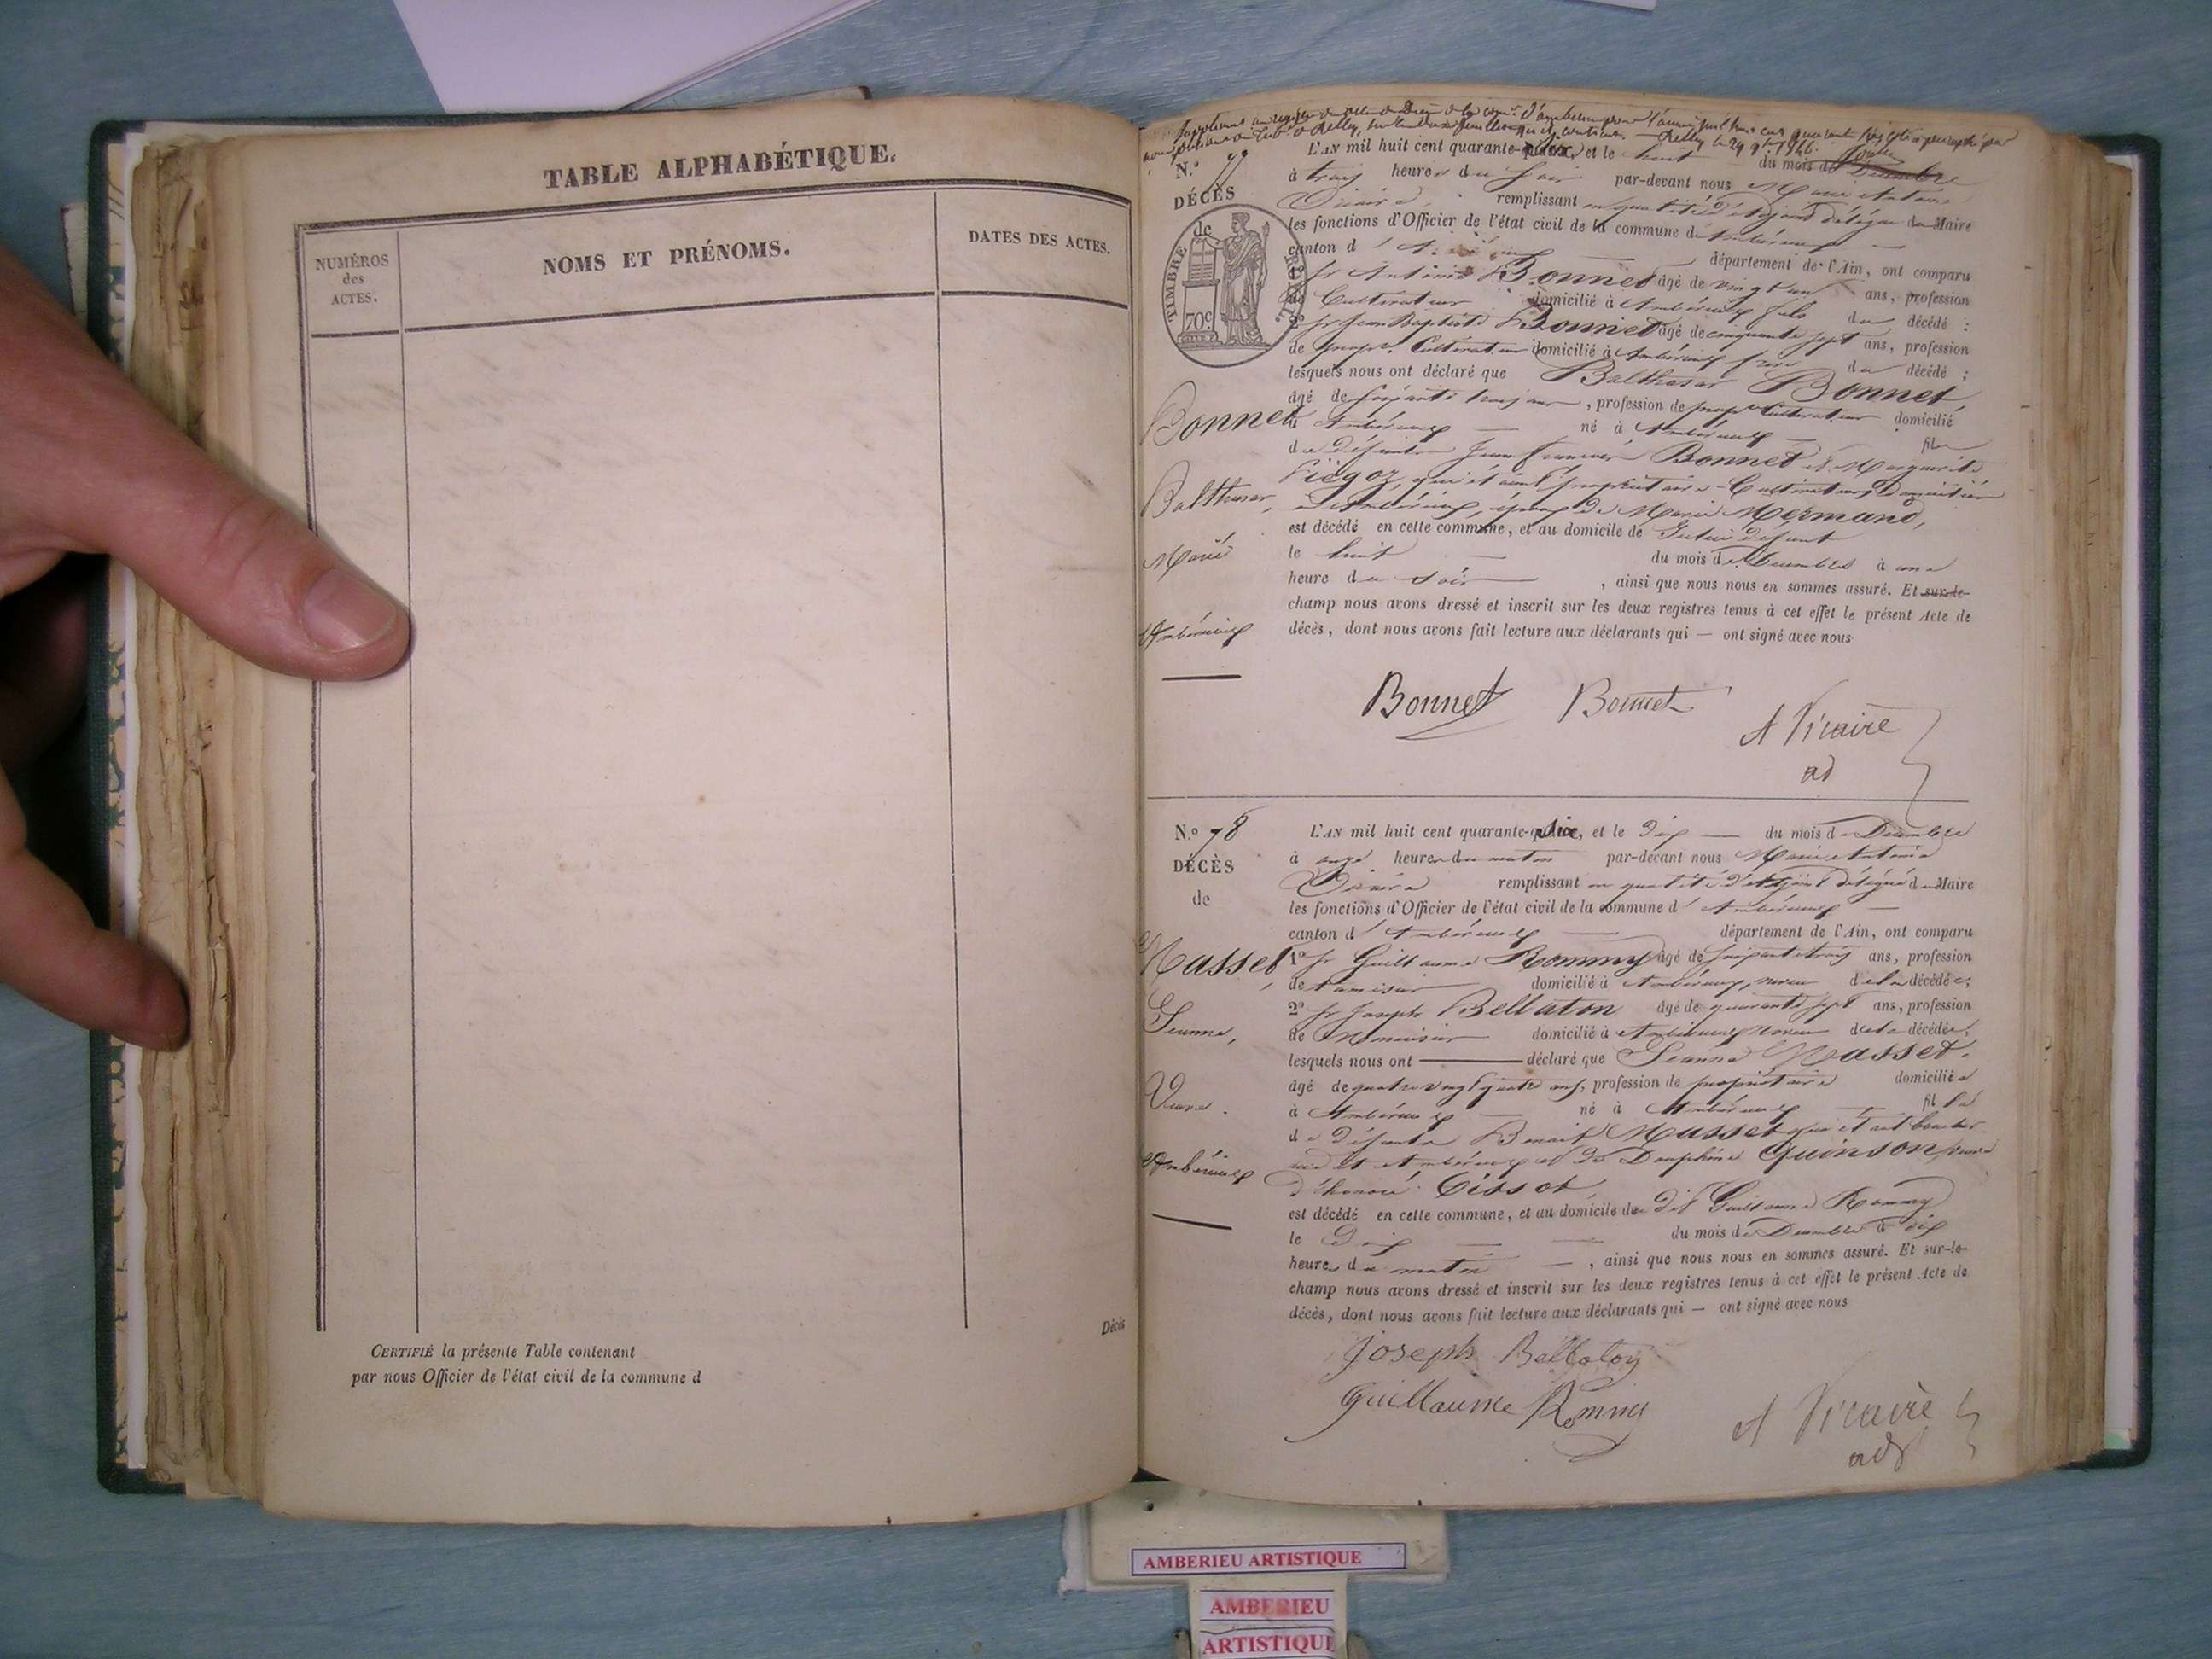 TABLE ALPHABÉTIQUE.
NUMÉROS
des
ACTES.
NOMS ET PRÉNOMS.
DATES DES ACTES.
Décès
CERTIFIÉ la présente Table contenant
par nous Officier de l'état civil de la commune d
N.º 77
DÉCÈS
de
TIMBRE ROYAL
70c
Bonnet
Balthasar,
Marié
Ambérieux
L'AN mil huit cent quarante-six, et le huit du mois de Décembre
à trois heures du soir par-devant nous Marie Antoine
Vicaire, remplissant en qualité d'adjoint délégué du Maire
les fonctions d'Officier de l'état civil de la commune d'Ambérieux
canton d' département de l'Ain, ont comparu
1º Sr Antoine Bonnet âgé de vingt un ans, profession
de Cultivateur domicilié à Ambérieux fils du décédé :
2º Sr Jean Baptiste Bonnet âgé de cinquante sept ans, profession
de propre Cultivateur domicilié à Ambérieux frère du décédé ;
lesquels nous ont déclaré que Balthasar Bonnet,
âgé de soixante trois ans, profession de propre Cultivateur domicilié
à Ambérieux né à Ambérieux fils
de défunts Jean François Bonnet et Marguerite
qui étaient propriétaires Cultivateurs domiciliés
à Ambérieux, époux de Marie Mermand,
est décédé en cette commune, et au domicile de défunt
le huit du mois de Décembre à une
heure du soir, ainsi que nous nous en sommes assuré. Et sur-le-
champ nous avons dressé et inscrit sur les deux registres tenus à cet effet le présent Acte de
décès, dont nous avons fait lecture aux déclarants qui — ont signé avec nous
Bonnet Bonnet
A Vicaire
ad
N.º 78
DÉCÈS
de
Masset,
Jeanne,
Veuve.
Ambérieux
L'AN mil huit cent quarante-six, et le dix du mois de Décembre
à onze heures du matin par-devant nous Marie Antoine
Vicaire remplissant en qualité d'adjoint délégué du Maire
les fonctions d'Officier de l'état civil de la commune d'Ambérieux
canton d'Ambérieux département de l'Ain, ont comparu
1º Sr Guillaume Rommy âgé de soixante trois ans, profession
de tamisier domicilié à Ambérieux, neveu de la décédée;
2º Sr Joseph Bellaton âgé de quarante sept ans, profession
de Menuisier domicilié à Ambérieux neveu de la décédée;
lesquels nous ont déclaré que Jeanne Masset,
âgé de quatre vingt quatre ans, profession de propriétaire domiciliée
à Ambérieux né à Ambérieux fille
de défunts Benoit Masset qui était boucher
audit Ambérieux et de Dauphine Quinson, veuve
d'honoré Tissot,
est décédé en cette commune, et au domicile du dit Guillaume Rommy
le Dix du mois de Décembre à dix
heures du matin, ainsi que nous nous en sommes assuré. Et sur-le-
champ nous avons dressé et inscrit sur les deux registres tenus à cet effet le présent Acte de
décès, dont nous avons fait lecture aux déclarants qui — ont signé avec nous
Joseph Bellaton
Guillaume Rommy
A Vicaire
adj
AMBERIEU ARTISTIQUE
AMBERIEU
ARTISTIQUE